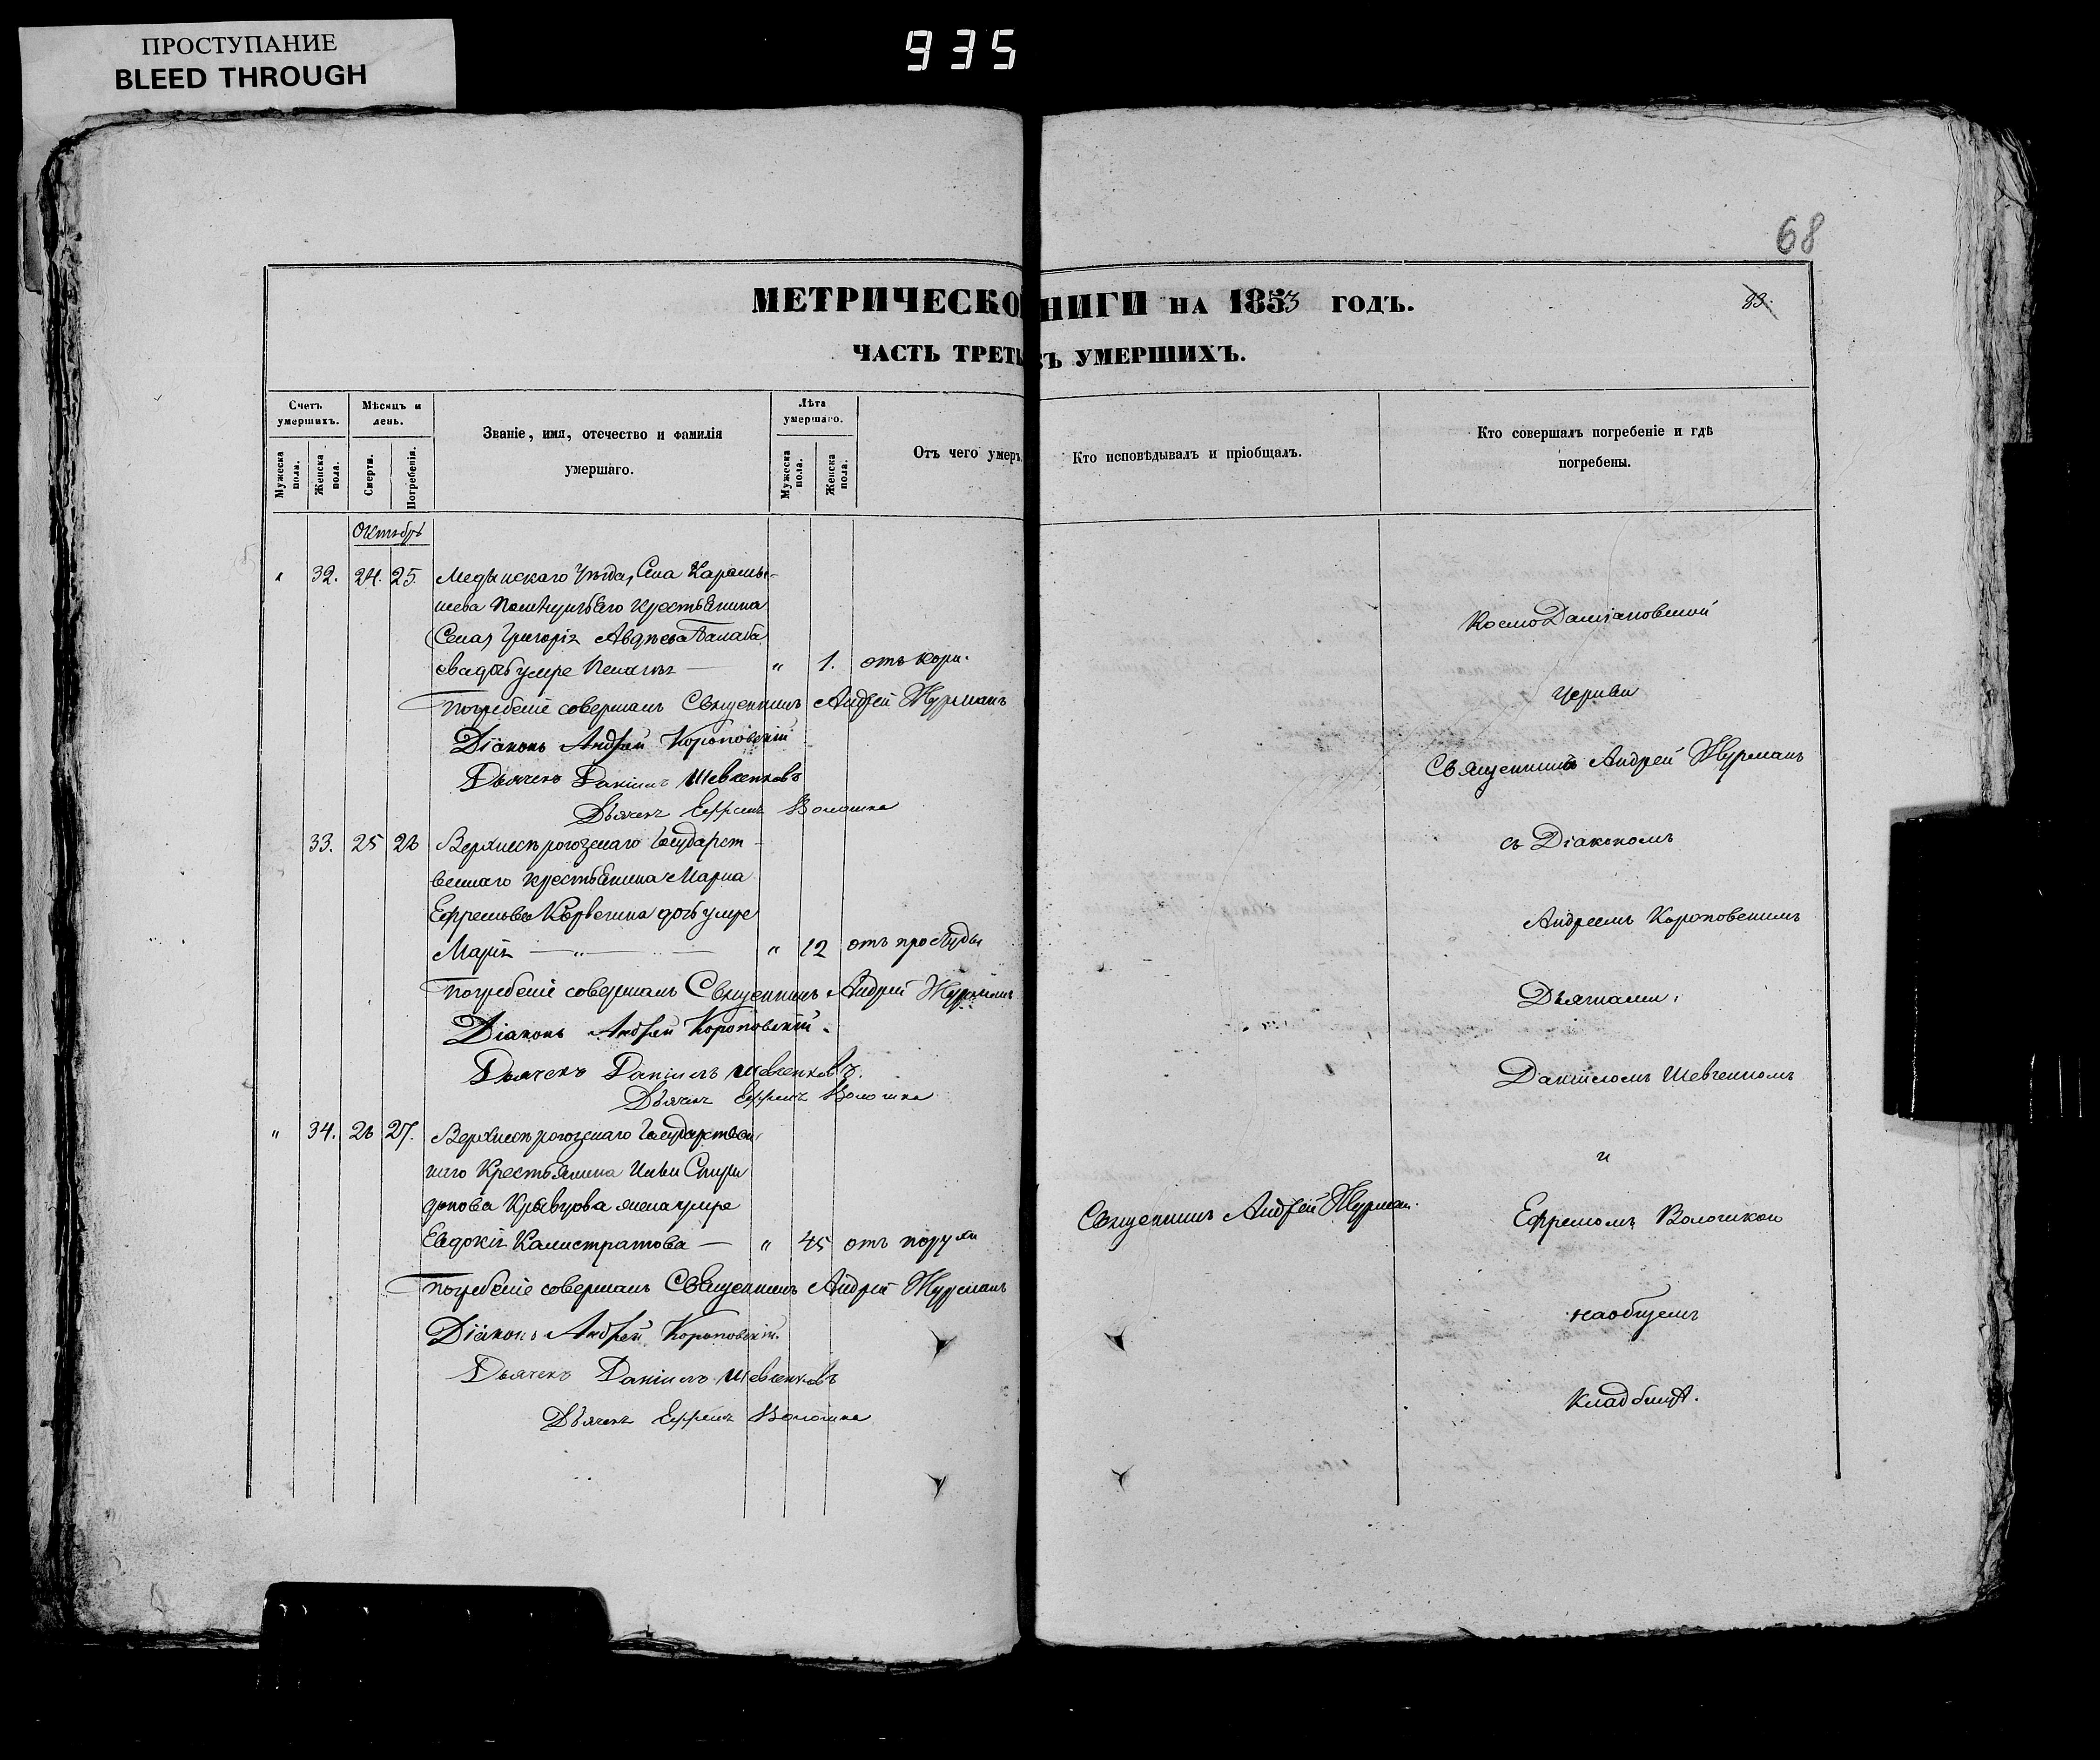 ПРОСТУПАНИЕ
BLEED THROUGH
935
68
МЕТРИЧЕСКО НИГИ НА 1853 ГОДЪ.
83.
ЧАСТЬ ТРЕТЬ УМЕРШИХЪ.
Счетъ умершихъ.
Мужеска пола.
Женска пола.
Мѣсяцъ и день.
Смерти.
Погребенія.
Званіе, имя, отечество и фамилія
умершаго.
Лѣта умершаго.
Мужеска пола.
Женска пола.
Отъ чего умеръ
Кто исповѣдывалъ и пріобщалъ.
Кто совершалъ погребеніе и гдѣ
погребены.
Октябрь
" 32. 24. 25. Медынскаго Уѣзда, Села
крестьянина
Григорія
умре " 1. отъ кори.
Погребеніе совершалъ Священникъ Андрей Журманъ
Діаконъ Андрей Короповскій
Дьячекъ Даніилъ Шевченковъ
Дьячекъ Ефремъ Волошка
33. 25 26 Верхнерогозскаго Государст-
веннаго крестьянина Марка
Ефремова дочь умре
Марія " 12 отъ простуды
Погребеніе совершалъ Священникъ Андрей Журманъ
Діаконъ Андрей Короповскій.
Дьячекъ Даніилъ Шевченковъ.
Дьячекъ Ефремъ Волошка
" 34. 26 27. Верхнерогозскаго Государствен
наго Крестьянина Ильи Спири
донова Кравцова жена умре
Евдокія Калистратова " 45 отъ
Погребеніе совершалъ Священникъ Андрей Журманъ
Діаконъ Андрей Короповскій.
Дьячекъ Даніилъ Шевченковъ
Дьячекъ Ефремъ Волошка
Священникъ Андрей Журман.
Космо Даміановской
Церкви
Священникъ Андрей Журманъ
съ Діакономъ
Андреемъ Короповскимъ
Дьячками:
Даніиломъ Шевченкомъ
и
Ефремомъ Волошкою
на общемъ
Кладбищѣ.